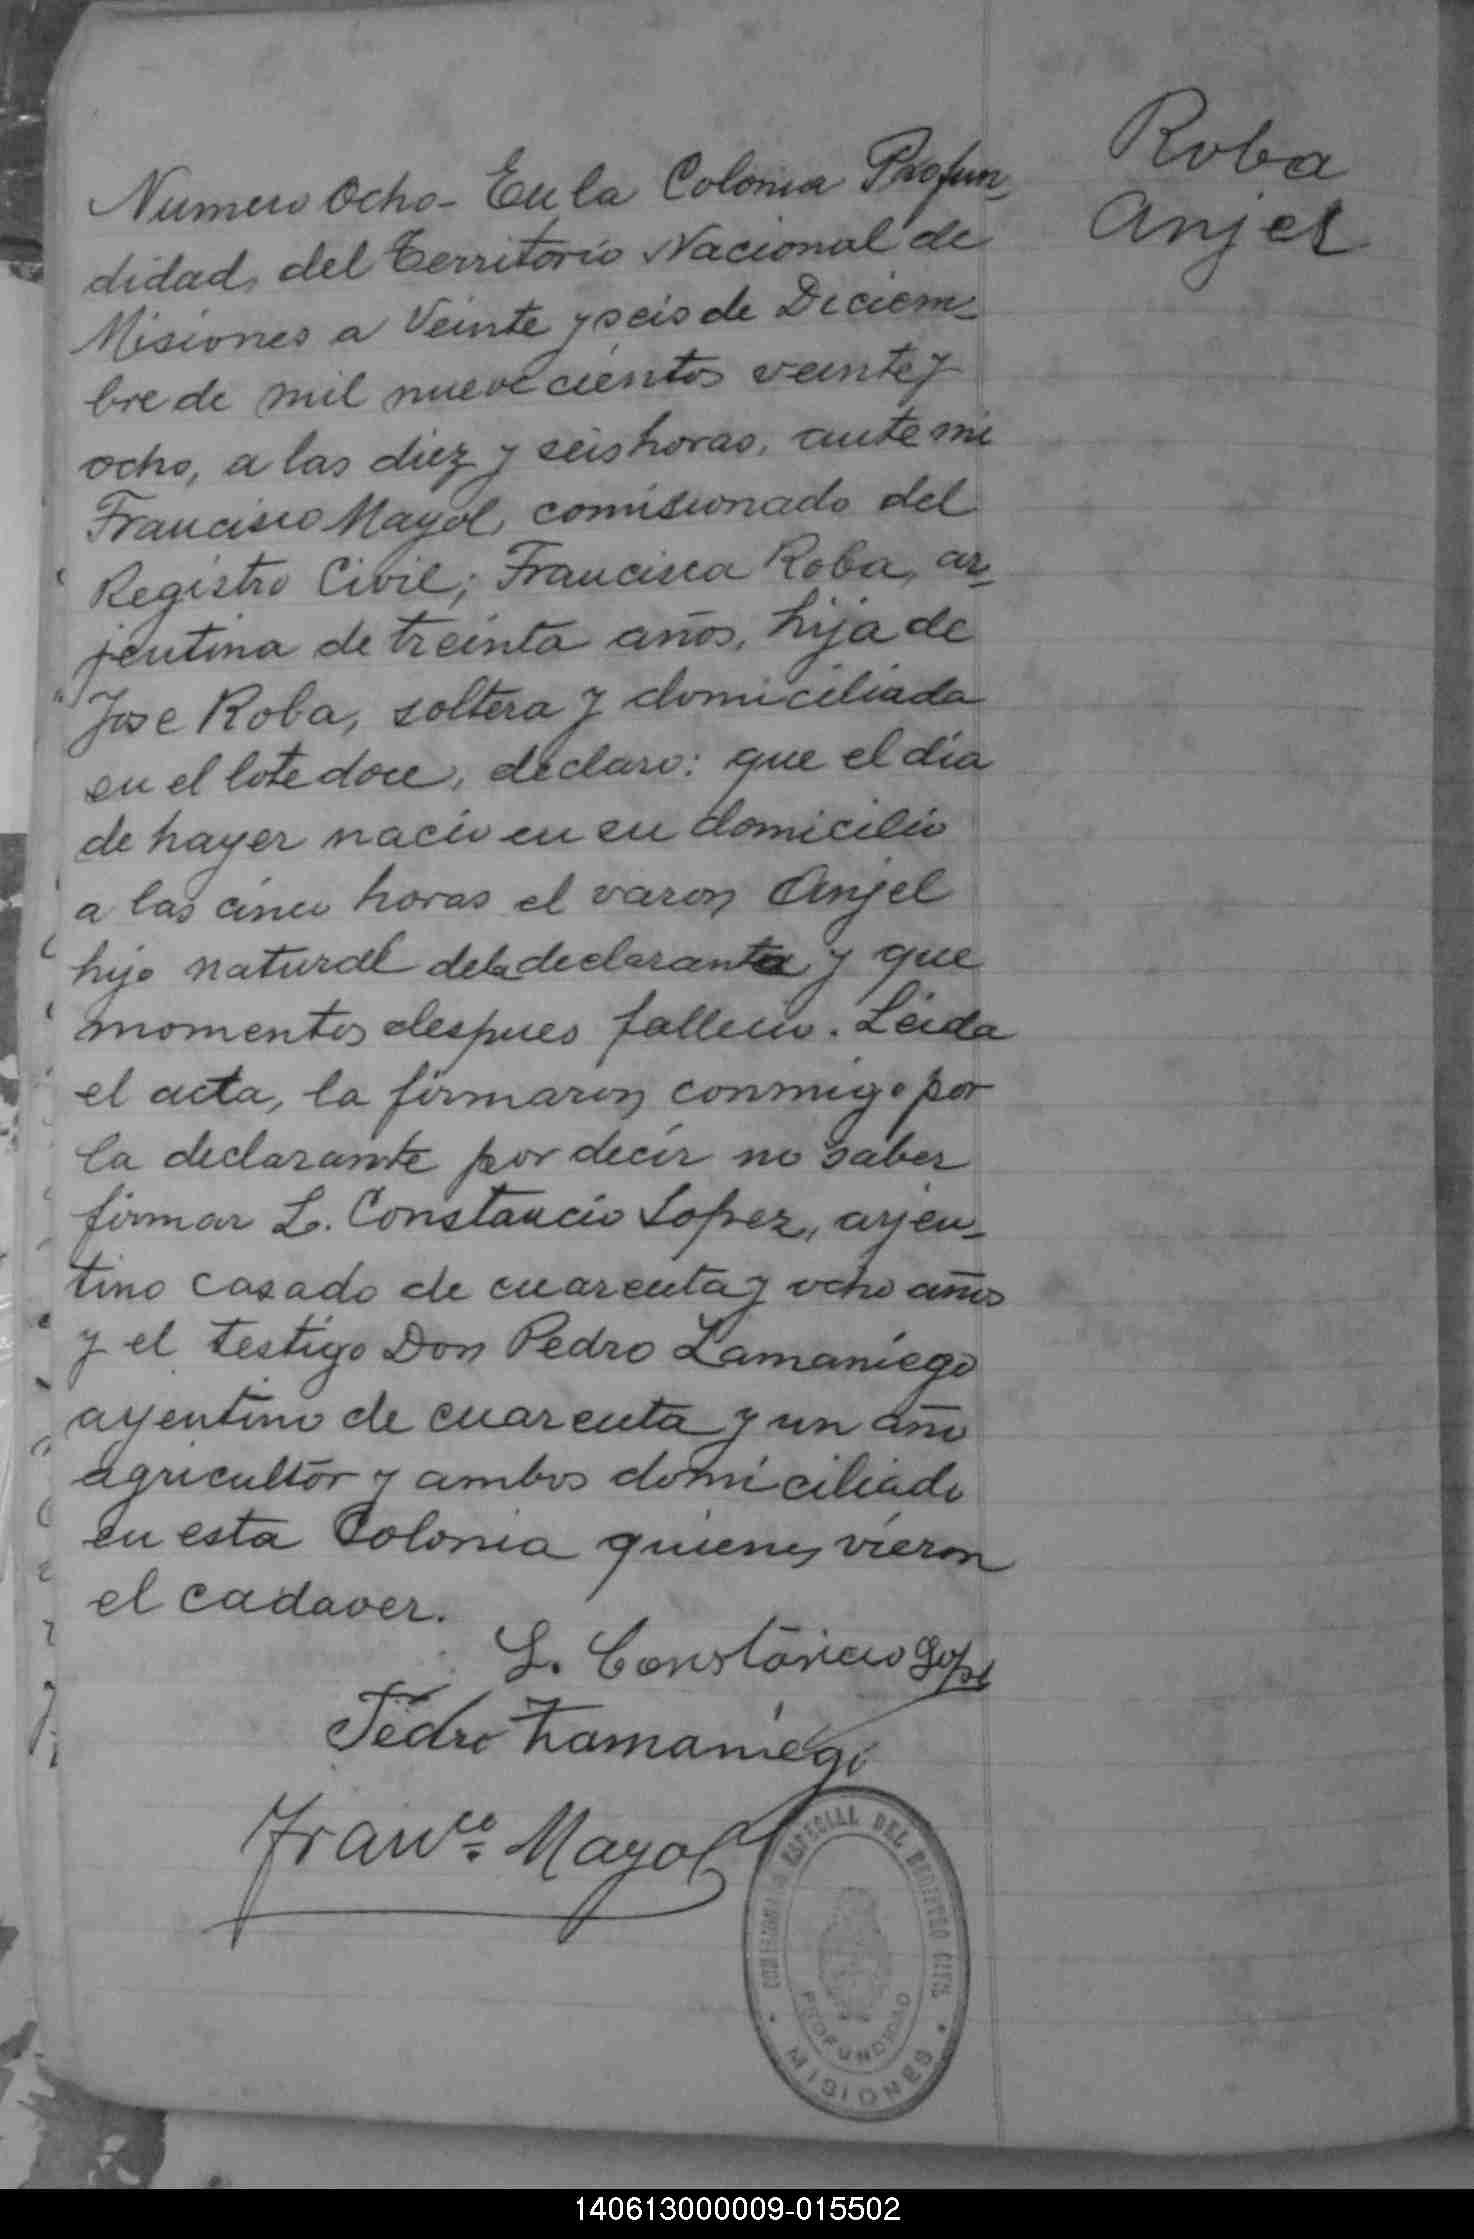 Roba
Anjel
Numero Ocho- En la Colonia Profun-
didad, del Territorio Nacional de
Misiones a Veinte y seis de Diciem-
bre de mil nuevecientos veinte y
ocho, a las diez y seis horas, ante mi
Francisco Mayol, comisionado del
Registro Civil; Francisca Roba, ar-
jentina de treinta años, hija de
Jose Roba, soltera y domiciliada
en el lote doce, declaro: que el dia
de hayer nacio en su domicilio
a las cinco horas el varon Anjel
hijo natural de la declaranta y que
momentos despues fallecio. Leida
el acta, la firmaron conmigo por
la declarante por decir no saber
firmar L. Constancio Lopez, arjen-
tino casado de cuarenta y ocho años
y el testigo Don Pedro Zamaniego
arjentino de cuarenta y un año
agricultor y ambos domiciliado
en esta Colonia quienes vieron
el cadaver.
L. Constancio Lopez
Pedro Zamaniego
Franco. Mayol
ESPECIAL DEL REGISTRO CIVIL
PROFUNDIDAD
MISIONES
140613000009-015502